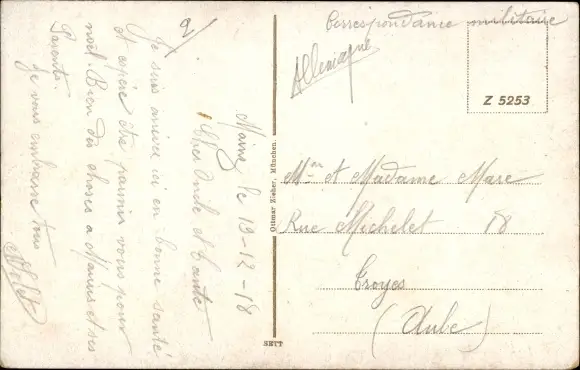 2/
Mainz le 19-12-18
Cher Oncle et Tante
Je suis arrivé ici en bonne santé
et espère être parmis vous pour
noël. Bien des choses a Marius et ses
Parents.
Je vous embrasse tous
Correspondance militaire
Allemagne
Z 5253
Mr et Madame Marc
Rue Michelet 18
Troyes
(Aube)
Ottmar Zieher, München.
SETT